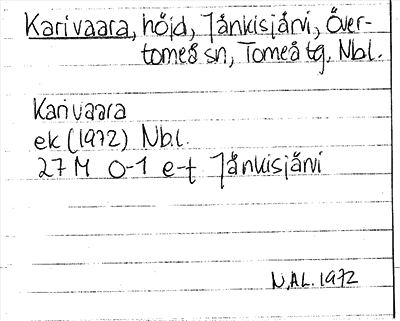 Karivaara, höjd, Jånkisjärvi, Över-
torneå sn, Torneå tg, Nbl.
Karivaara
ek (1972) Nbl.
27 M 0-1 e-f Jånkisjärvi
N.ÅL. 1972